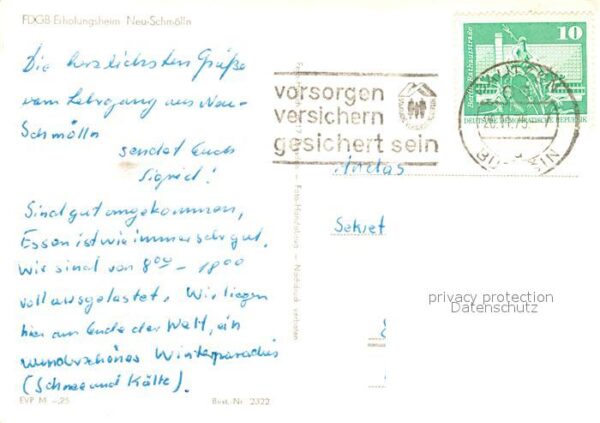 FDGB Erholungsheim Neu-Schmölln
Die herzlichsten Grüße
vom Lehrgang aus Neu-
Schmölln
sendet Euch
Sigrid!
Sind gut angekommen,
Essen ist wie immer sehr gut.
Wir sind von 8⁰⁰ - 18⁰⁰
voll ausgelastet. Wir liegen
hier am Ende der Welt, ein
wunderschönes Winterparadies
(Schnee und Kälte).
EVP M -,25
Best. Nr. 2322
vorsorgen
versichern
gesichert sein
10
Berlin, Rathausstraße
DEUTSCHE DEMOKRATISCHE REPUBLIK
An das
Sekret
privacy protection
Datenschutz